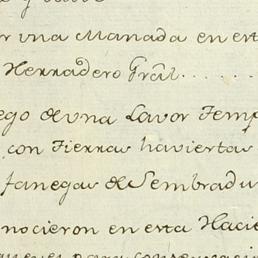 r una Manada en est
Herradero Grâl......
ego de una Lavor Temp
con Tierras haviertas
fanegas de Sembradu
nocieron en esta Hacie